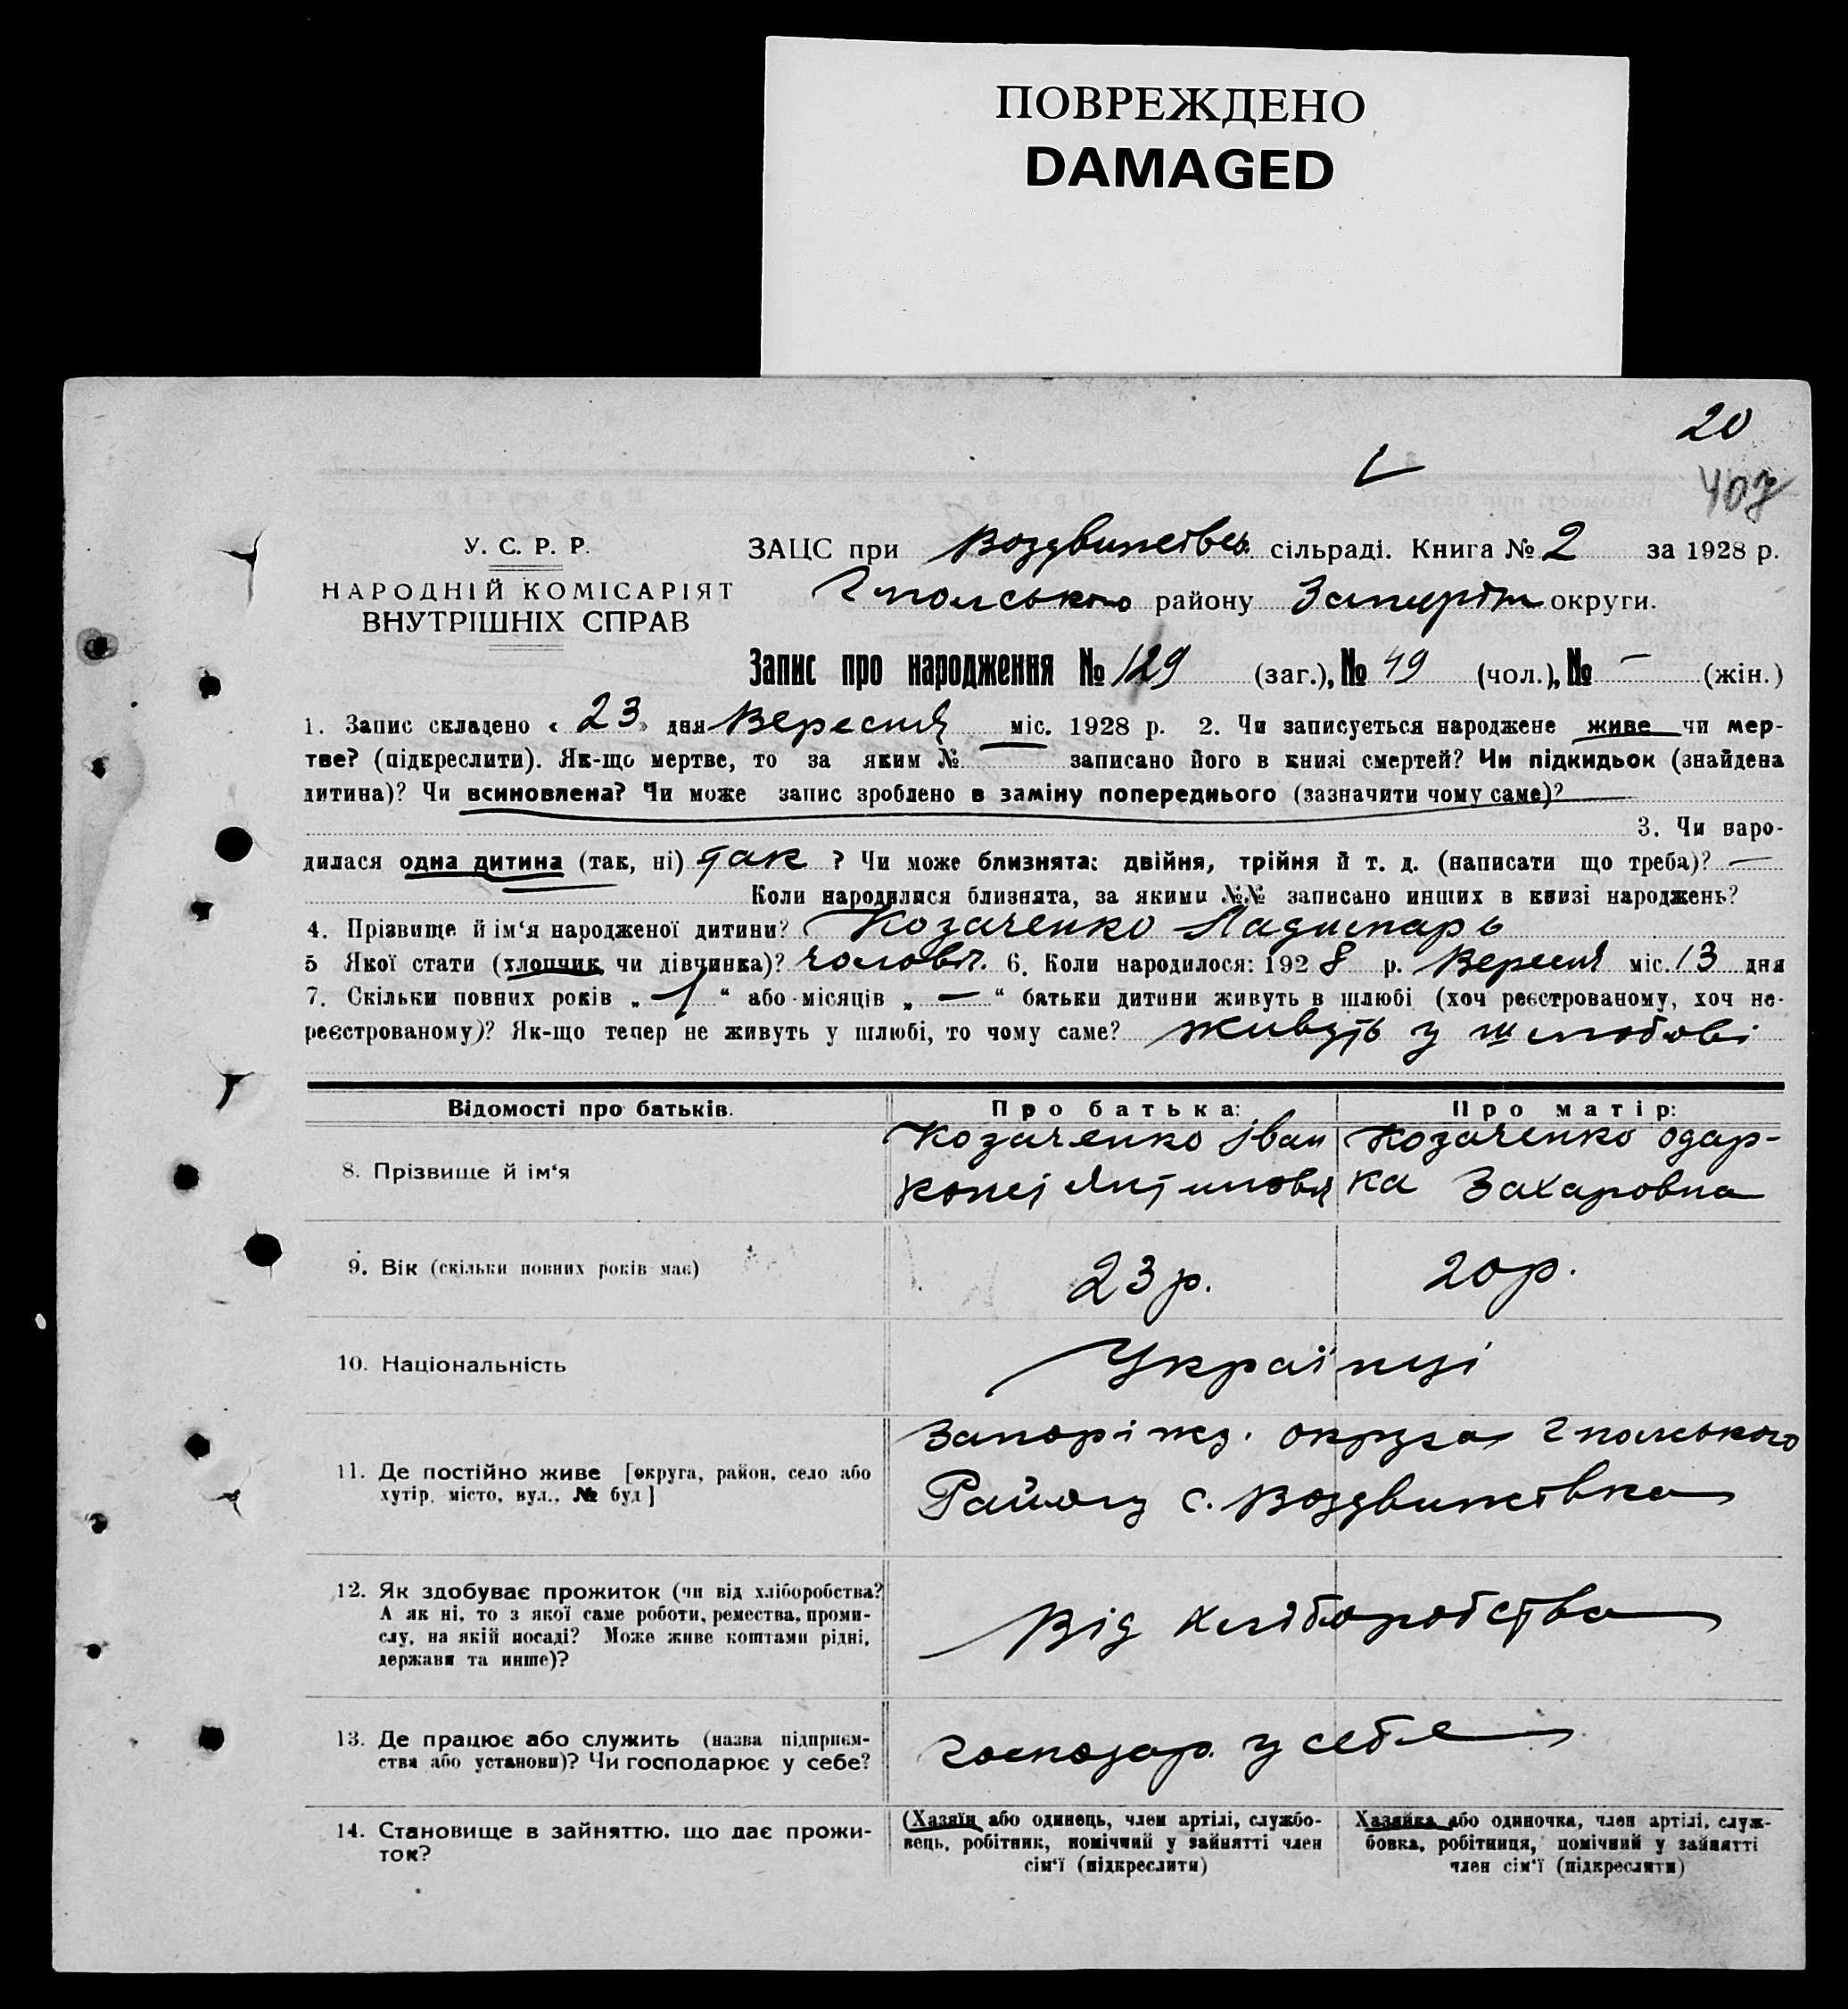 ПОВРЕЖДЕНО
DAMAGED
20
407
У. С. Р. Р.
НАРОДНІЙ КОМІСАРІЯТ
ВНУТРІШНІХ СПРАВ
ЗАЦС при Воздвижівсь. сільраді. Книга № 2 за 1928 р.
Гпольського району Запоріж округи.
Запис про народження № 129 (заг.), № 49 (чол.), № — (жін.)
1. Запис складено « 23 » дня Вересня міс. 1928 р. 2. Чи записується народжене живе чи мер-
тве? (підкреслити). Як-що мертве, то за яким № записано його в книзі смертей? Чи підкидьок (знайдена
дитина)? Чи всиновлена? Чи може запис зроблено в заміну попереднього (зазначити чому саме)?
3. Чи наро-
дилася одна дитина (так, ні) так ? Чи може близнята: двійня, трійня й т. д. (написати що треба)? —
Коли народилися близнята, за якими №№ записано инших в книзі народжень?
4. Прізвище й ім‘я народженої дитини? Козаченко
5 Якої стати (хлопчик чи дівчинка)? чоловіч. 6. Коли народилося: 1928 р. Вересня міс. 13 дня
7. Скільки повних років „ 1 “ або місяців „ — “ батьки дитини живуть в шлюбі (хоч реєстрованому, хоч не-
реєстрованому)? Як-що тепер не живуть у шлюбі, то чому саме? живуть у шлюбові
Відомості про батьків.
Про батька:
Про матір:
8. Прізвище й ім‘я
Козаченко Іван
Козаченко Одар-
ка Захаровна
9. Вік (скільки повних років має)
23 р.
20 р.
10. Національність
Українці
11. Де постійно живе [округа, район, село або
хутір, місто, вул., № буд]
Запоріжз. округа Гпольського
Району с. Воздвижівка
12. Як здобуває прожиток (чи від хліборобства?
А як ні, то з якої саме роботи, ремества, проми-
слу, на якій посаді? Може живе коштами рідні,
держави та инше)?
Від хліборобства
13. Де працює або служить (назва підприєм-
ства або установи)? Чи господарює у себе?
господар. у себе
14. Становище в зайняттю, що дає прожи-
ток?
(Хазяїн або одинець, член артілі, службо-
вець, робітник, помічний у зайнятті член
сім‘ї (підкреслити)
Хазяйка або одиночка, член артілі, служ-
бовка, робітниця, помічний у зайнятті
член сім‘ї (підкреслити)